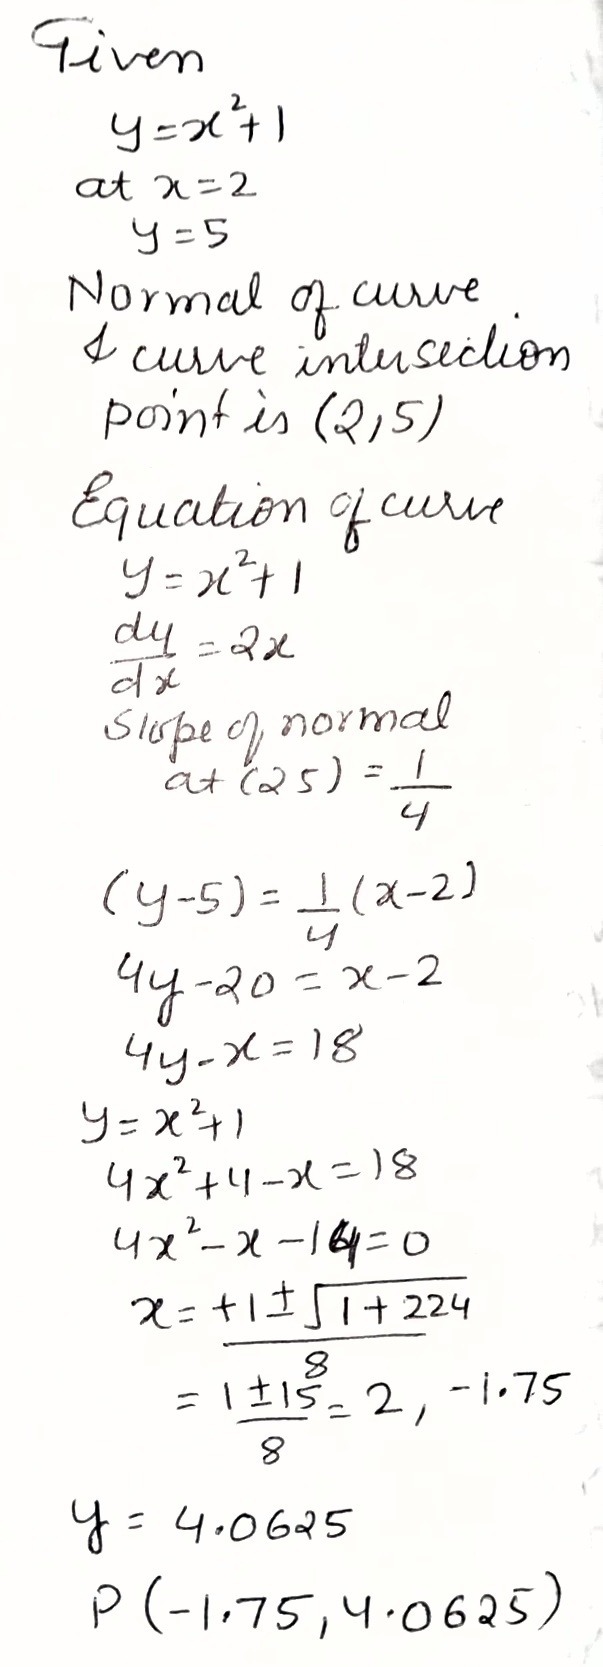 Given
y=x²+1
at x=2
y=5
Normal of curve
& curve intersection
point is (2,5)
Equation of curve
y=x²+1
dy/dx = 2x
Slope of normal
at (2 5) = 1/4
(y-5) = 1/4 (x-2)
4y-20 = x-2
4y-x=18
y=x²+1
4x²+4-x=18
4x²-x-14=0
x = +1±√1+224 / 8
= 1±15 / 8 = 2, -1.75
y = 4.0625
P(-1.75, 4.0625)